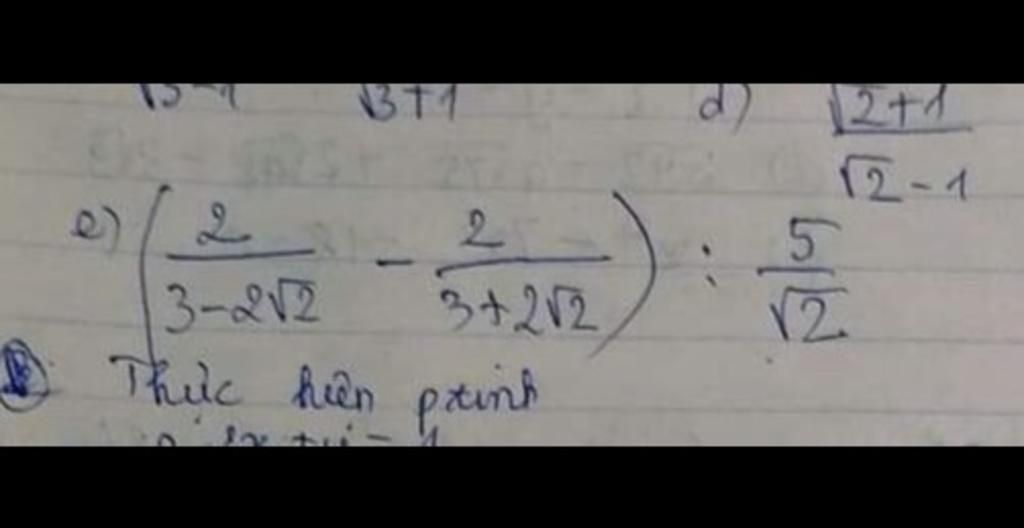 √3-1 √3+1 d) √2+1 / √2-1
e) (2 / 3-2√2 - 2 / 3+2√2) : 5 / √2
Thực hiện ptrinh